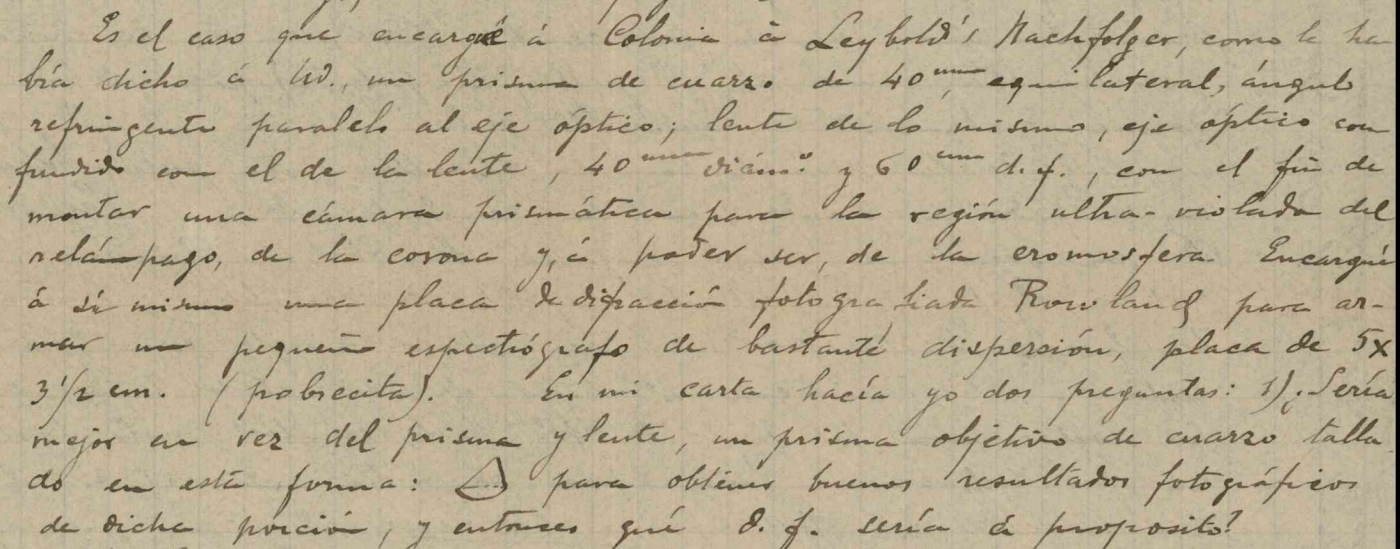 Es el caso que encargué á Colonia á Leybold's Nachfolger, como le ha-
bía dicho á Ud., un prisma de cuarzo de 40 mm, equilateral, ángulo
refringente paralelo al eje óptico; lente de lo mismo, eje óptico con
fundido con el de la lente, 40 mm diám.º y 60 cm d. f., con el fin de
montar una cámara prismática para la región ultra-violada del
relámpago, de la corona y, á poder ser, de la cromosfera. Encargué
á sí mismo una placa de difracción fotografiada Rowland para ar-
mar un pequeño espectrógrafo de bastante dispersión, placa de 5x
3 1/2 cm. (pobrecita). En mi carta hacía yo dos preguntas: 1) ¿Sería
mejor en vez del prisma y lente, un prisma objetivo de cuarzo talla
do en esta forma: para obtener buenos resultados fotográficos
de dicha porción, y entonces qué d. f. sería á proposito?